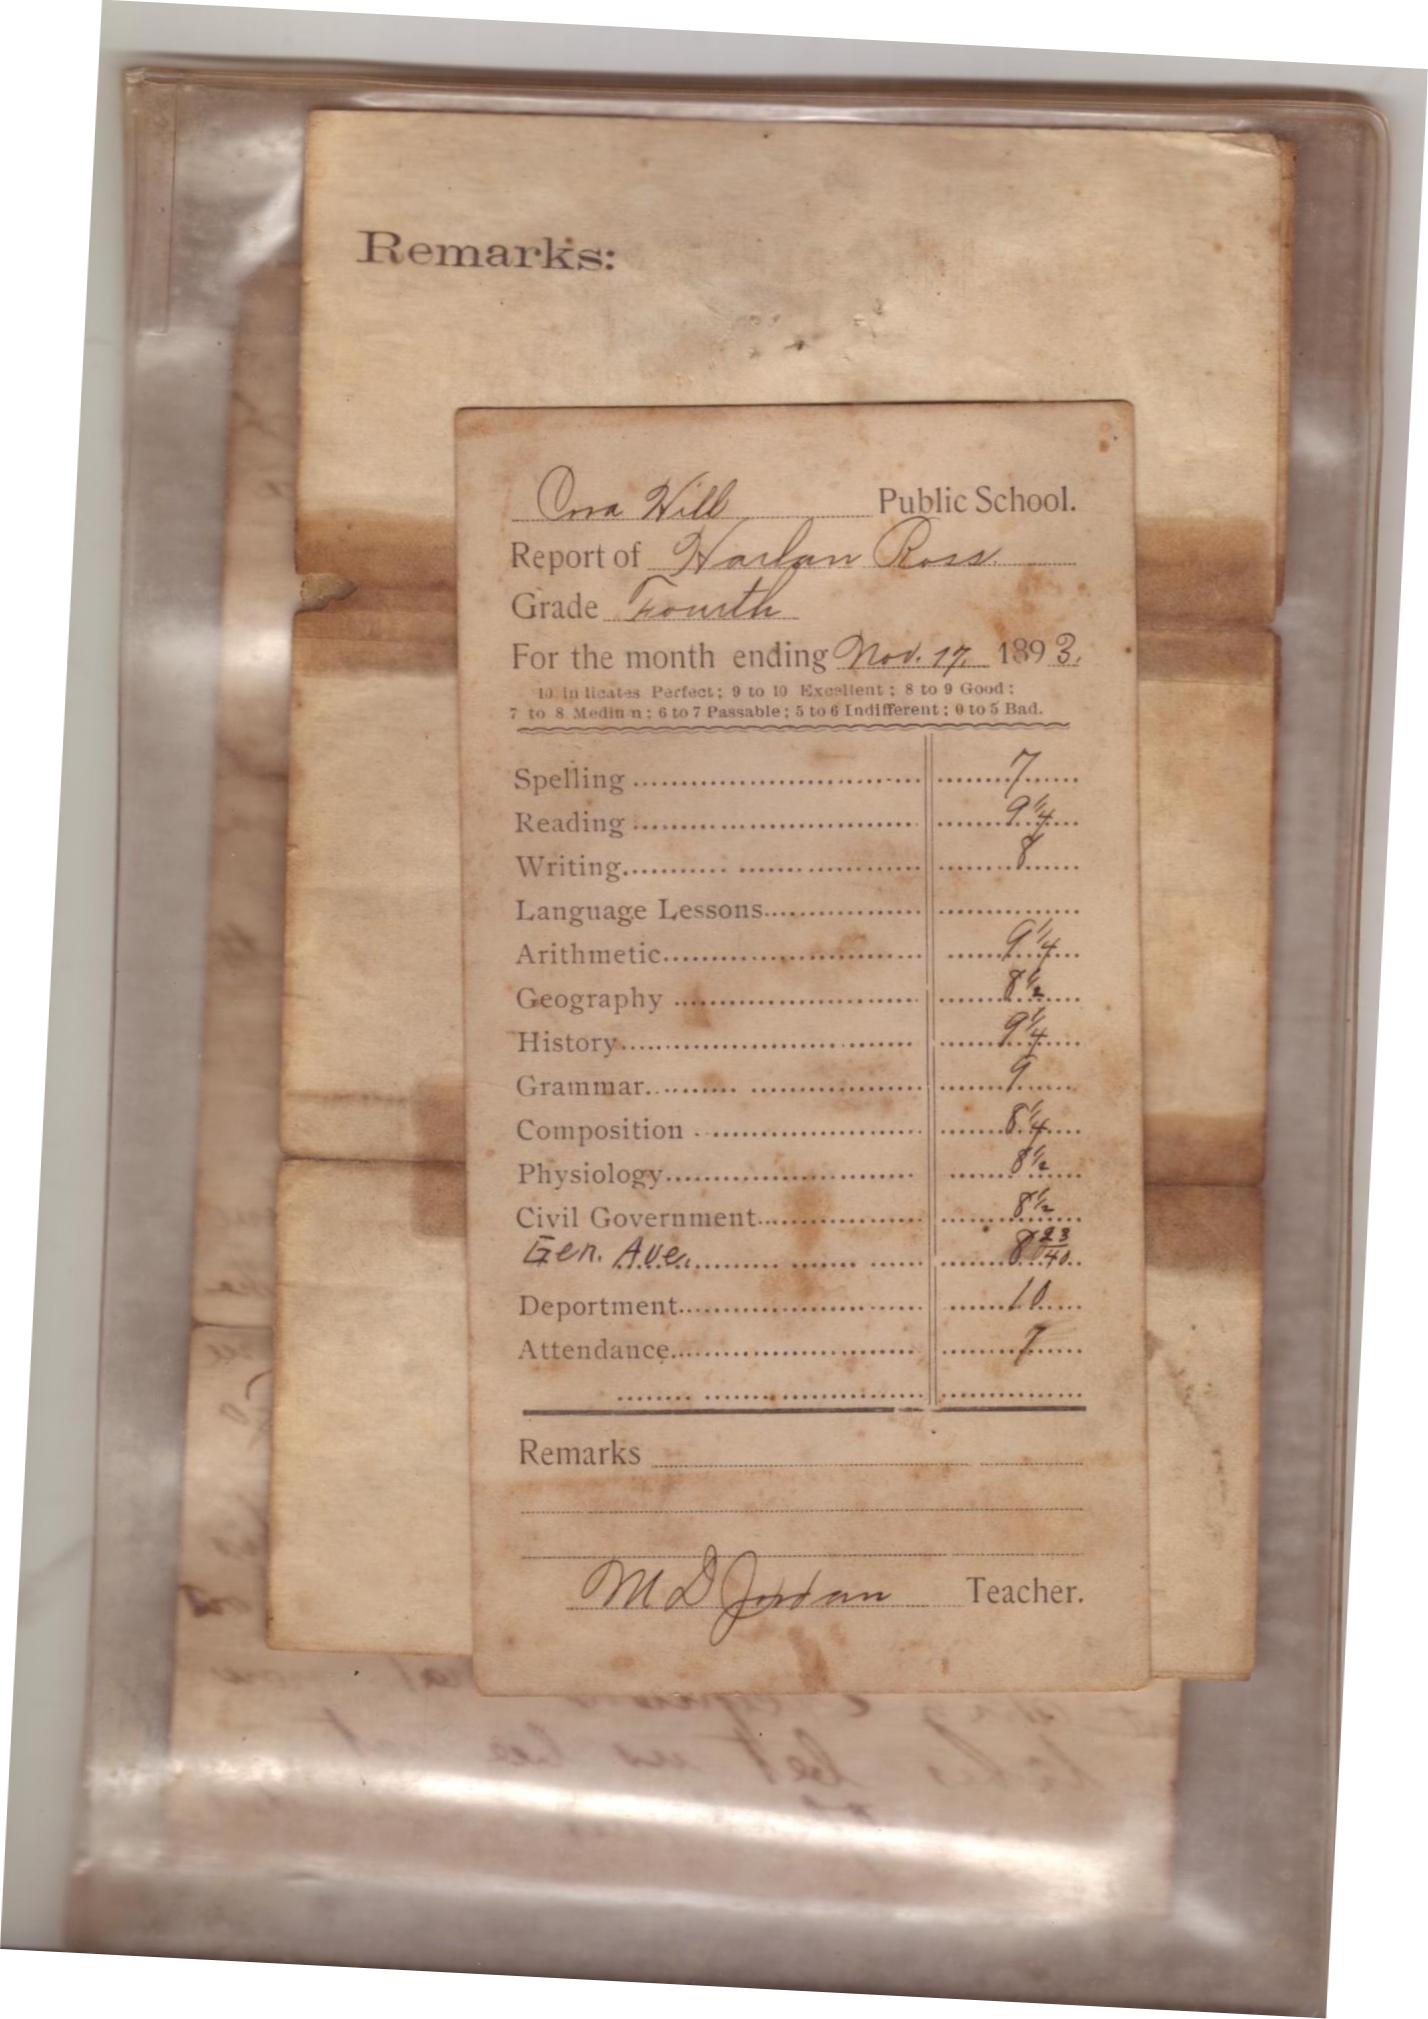 Remarks:
Cora Hill Public School.
Report of Harlan Ross.
Grade Fourth
For the month ending Nov. 17, 1893.
10 indicates Perfect; 9 to 10 Excellent; 8 to 9 Good;
7 to 8 Medium; 6 to 7 Passable; 5 to 6 Indifferent; 0 to 5 Bad.
Spelling 7
Reading 9 1/4
Writing 8
Language Lessons
Arithmetic 9 1/4
Geography 8 1/2
History 9 1/4
Grammar 9
Composition 8 1/4
Physiology 8 1/2
Civil Government 8 1/2
Gen. Ave. 8 23/40
Deportment 10
Attendance 7
Remarks
M D Jordan Teacher.